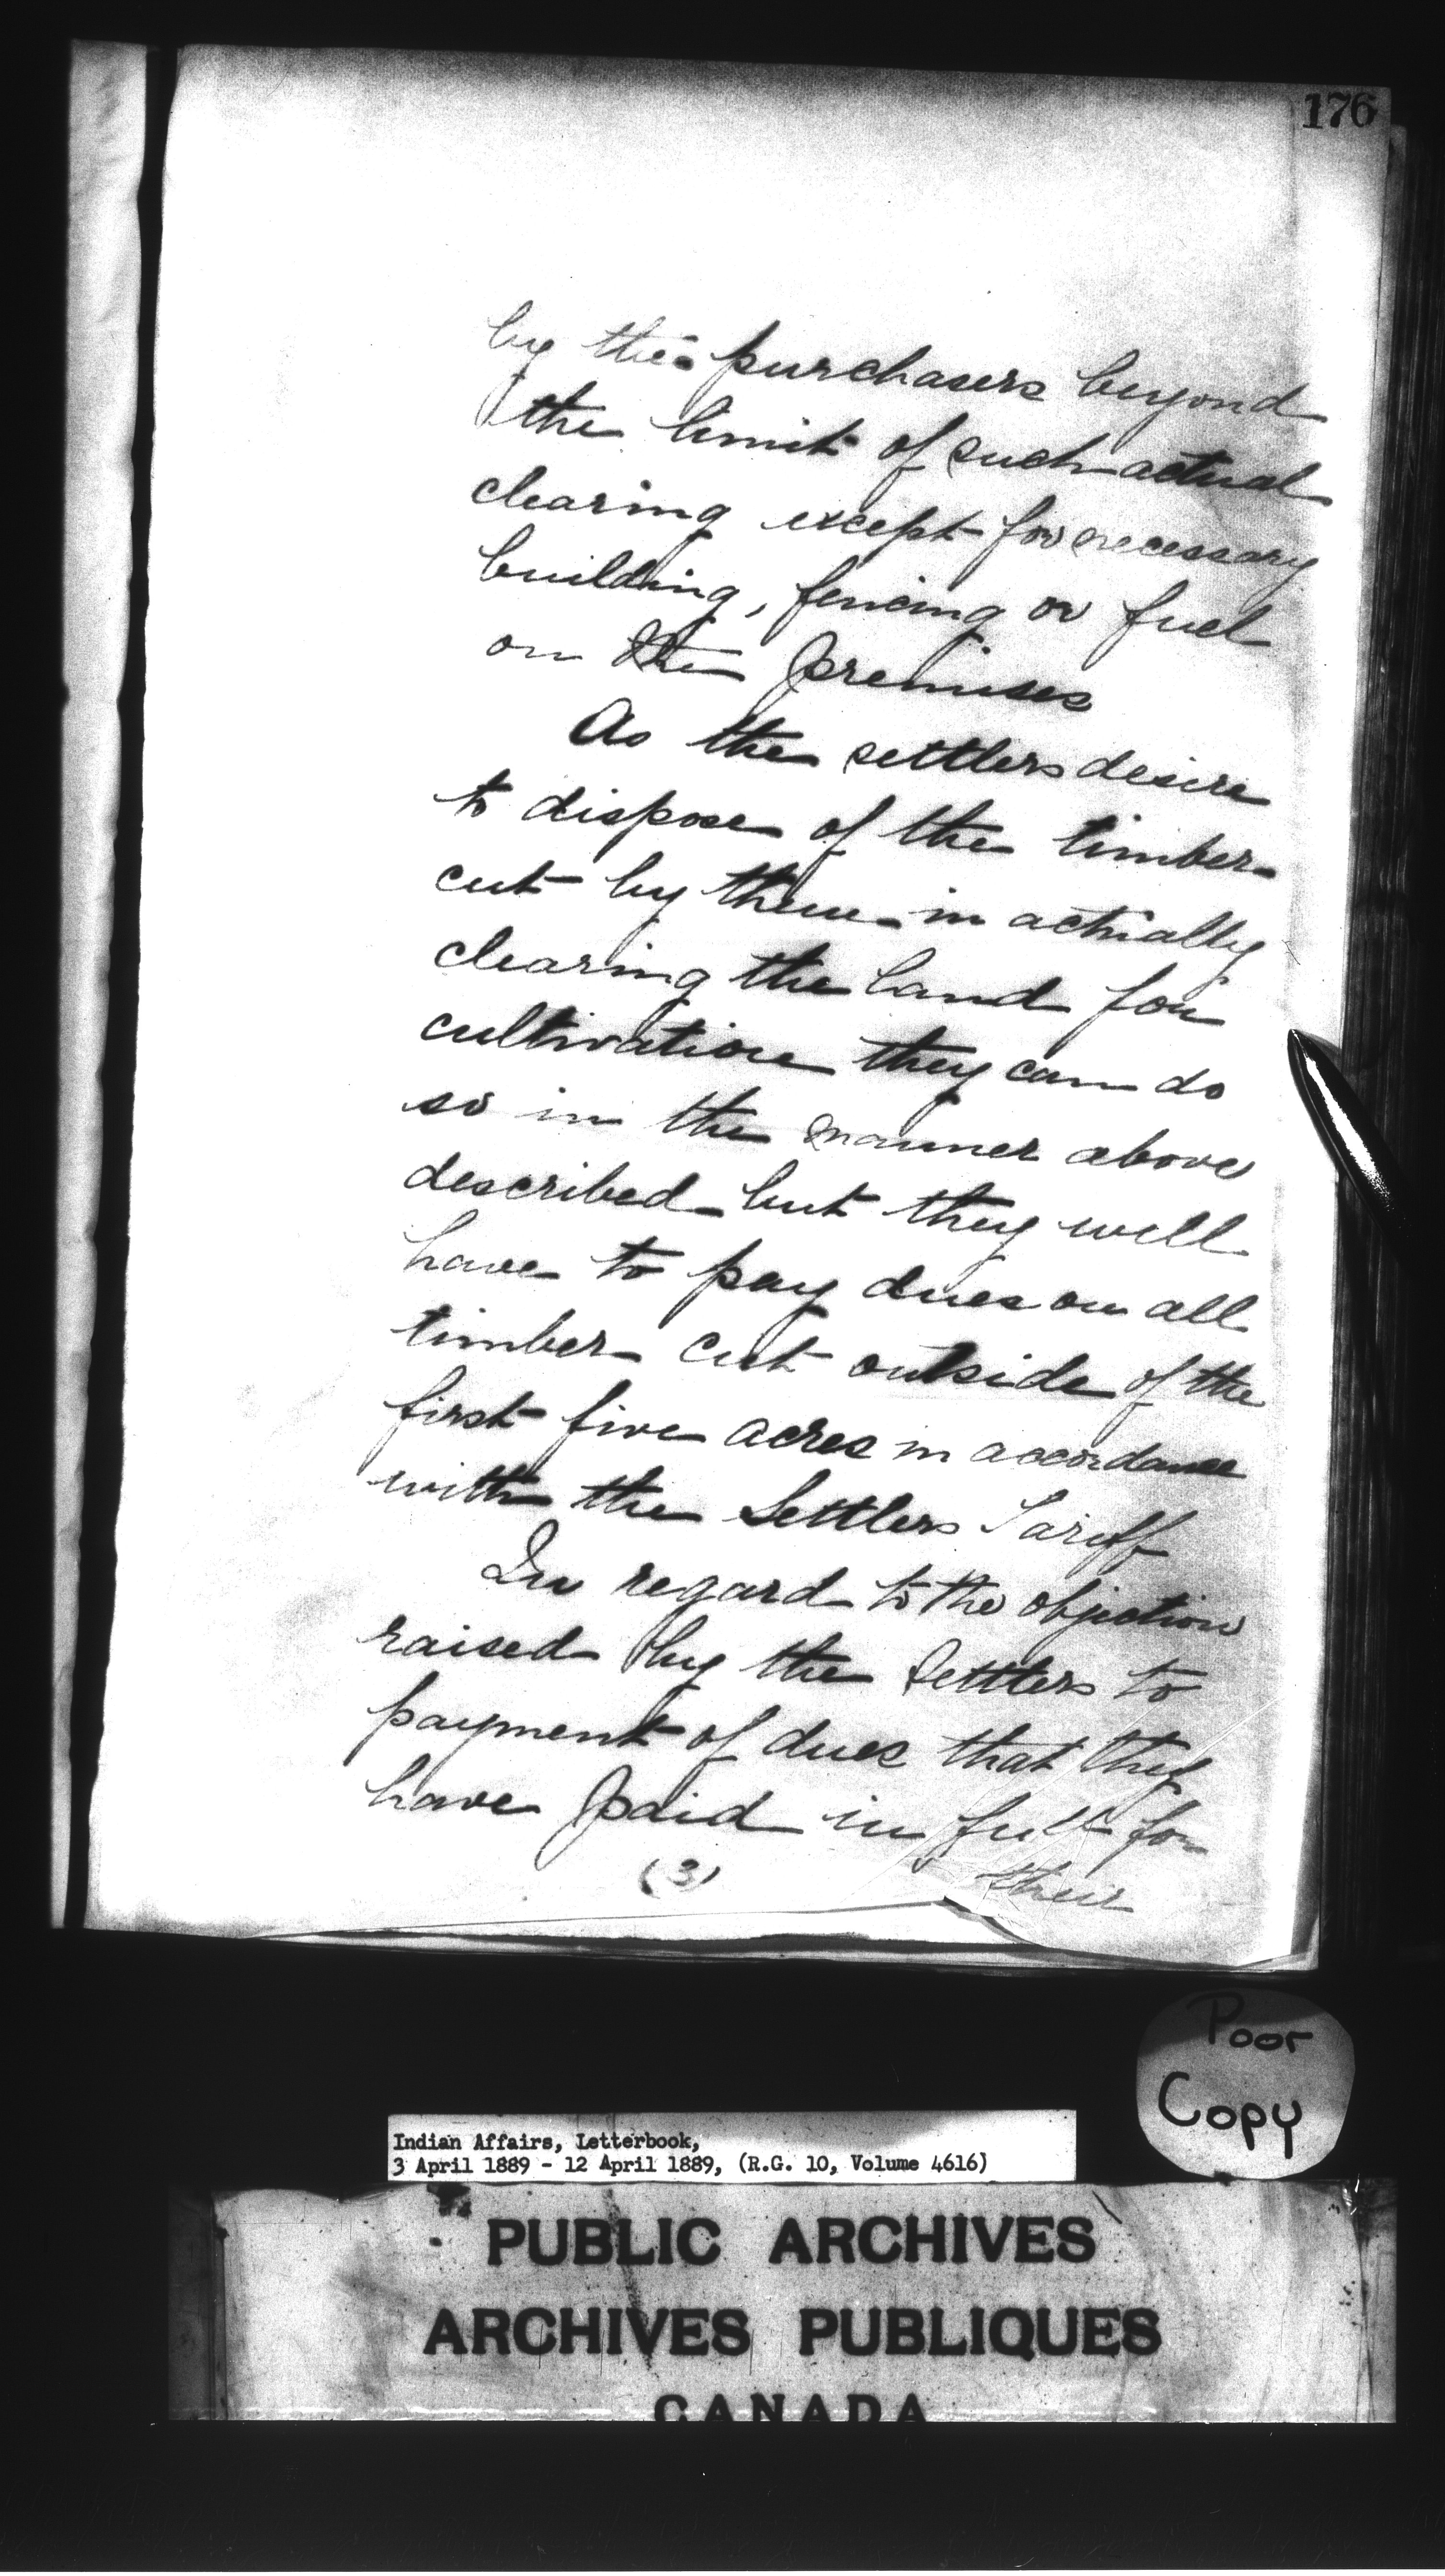 176
by the purchasers beyond
the limit of such actual
clearing except for necessary
building, fencing or fuel
on the premises
As the settlers desire
to dispose of the timber
cut by them in actually
clearing the land for
cultivation they can do
so in the manner above
described but they will
have to pay dues on all
timber cut outside of the
first five acres in accordance
with the Settlers Tariff
In regard to the objection
raised by the Settlers to
payment of dues that they
have paid in full for
(3) their
Poor
Copy
Indian Affairs, Letterbook,
3 April 1889 - 12 April 1889, (R.G. 10, Volume 4616)
PUBLIC ARCHIVES
ARCHIVES PUBLIQUES
CANADA